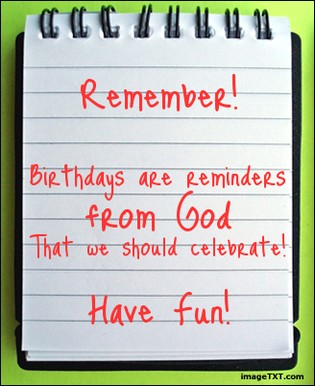 Remember!
Birthdays are reminders
from God
That we should celebrate!
Have fun!
imageTXT.com